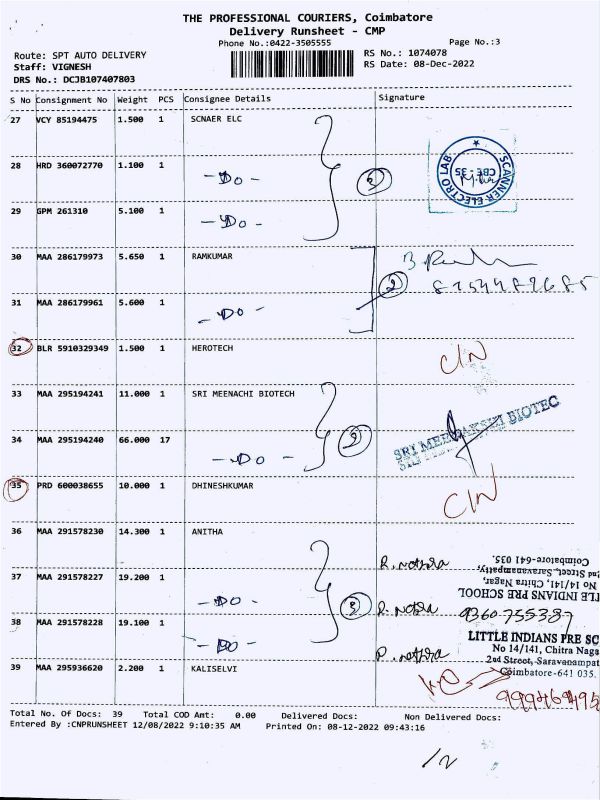 THE PROFESSIONAL COURIERS, Coimbatore
Delivery Runsheet - CMP
Phone No.:0422-3505555 Page No.:3
Route: SPT AUTO DELIVERY RS No.: 1074078
Staff: VIGNESH RS Date: 08-Dec-2022
DRS No.: DCJB107407803
S No Consignment No Weight PCS Consignee Details Signature
27 VCY 85194475 1.500 1 SCNAER ELC
SCANNER ELECTRO LAB
CBE-35
28 HRD 360072770 1.100 1 -Do-
3
29 GPM 261310 5.100 1 -Do-
30 MAA 286179973 5.650 1 RAMKUMAR
2
31 MAA 286179961 5.600 1 -Do-
32 BLR 5910329349 1.500 1 HEROTECH C/N
33 MAA 295194241 11.000 1 SRI MEENACHI BIOTECH
SRI MEENAKSHI BIOTEC
34 MAA 295194240 66.000 17 -Do-
2
35 PRD 600038655 10.000 1 DHINESHKUMAR C/N
36 MAA 291578230 14.300 1 ANITHA
Coimbatore-641 035.
2nd Street, Saravanampatty,
No 14/141, Chitra Nagar,
TLE INDIANS PRE SCHOOL
37 MAA 291578227 19.200 1 -Do-
3
9360755387
38 MAA 291578228 19.100 1 -Do-
LITTLE INDIANS PRE SC
No 14/141, Chitra Naga
2nd Street, Saravanampat
Coimbatore-641 035.
39 MAA 295936620 2.200 1 KALISELVI
Total No. Of Docs: 39 Total COD Amt: 0.00 Delivered Docs: Non Delivered Docs:
Entered By :CNPRUNSHEET 12/08/2022 9:10:35 AM Printed On: 08-12-2022 09:43:16